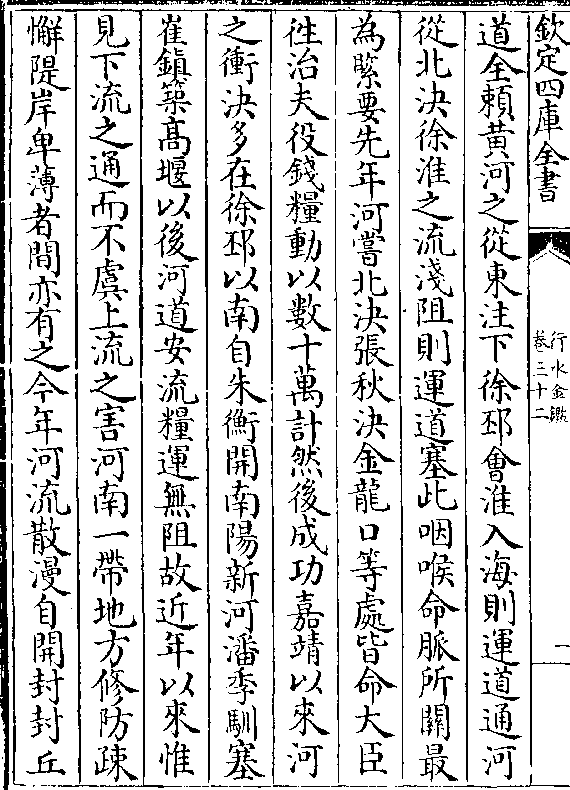 欽定四庫全書
行水金鑑
卷三十二
一
道全賴黄河之從東注下徐邳會淮入海則運道通河
從北決徐淮之流淺阻則運道塞此咽喉命脈所關最
為緊要先年河嘗北決張秋決金龍口等處皆命大臣
徃治夫役錢糧動以數十萬計然後成功嘉靖以來河
之衝決多在徐邳以南自朱衡開南陽新河潘季馴塞
崔鎮築髙堰以後河道安流糧運無阻故近年以來惟
見下流之通而不虞上流之害河南一帶地方修防疎
懈隄岸卑薄者間亦有之今年河流散漫自開封封丘